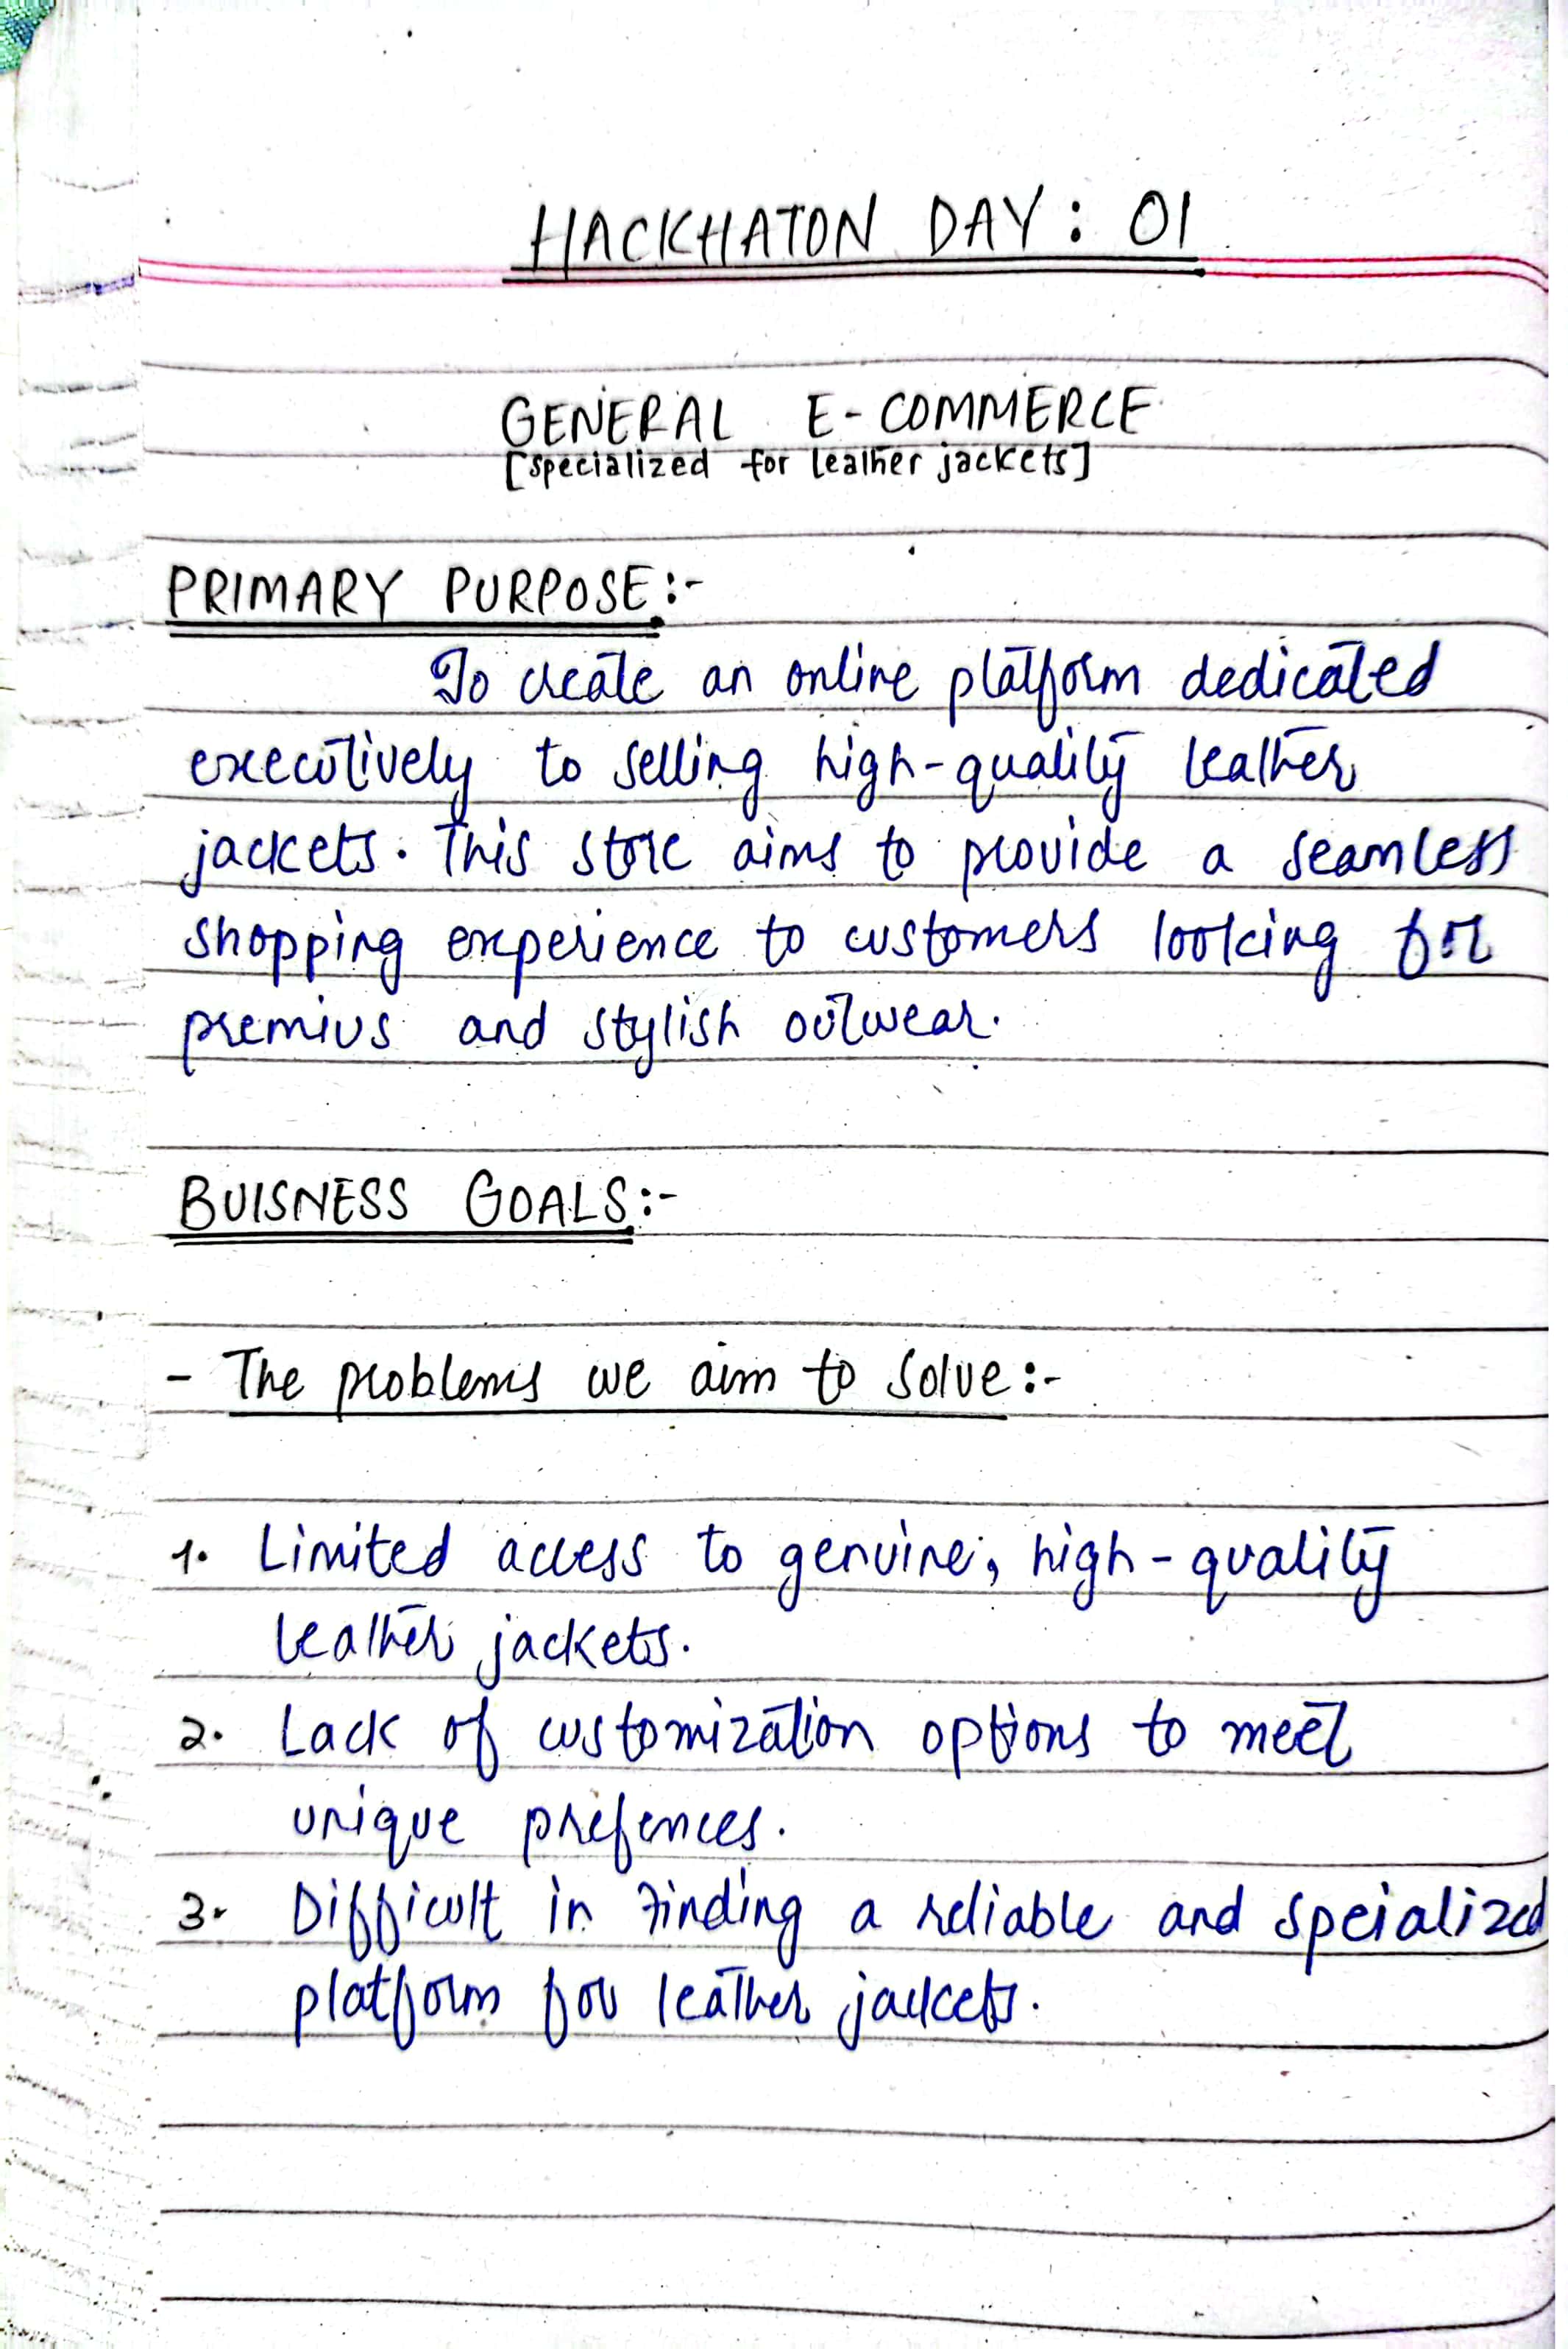 HACKHATON DAY : 01
GENERAL E-COMMERCE
[specialized for leather jackets]
PRIMARY PURPOSE:-
To create an online platform dedicated
executively to selling high-quality leather
jackets. This store aims to provide a seamless
shopping experience to customers looking for
premius and stylish outwear.
BUISNESS GOALS:-
- The problems we aim to solve:-
1. Limited access to genuine, high-quality
leather jackets.
2. Lack of customization options to meet
unique prefences.
3. Difficult in finding a reliable and speialized
platform for leather jackets.